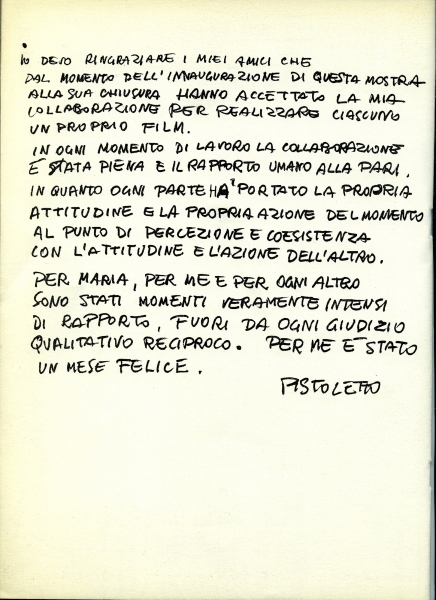 Io DEVO RINGRAZIARE I MIEI AMICI CHE
DAL MOMENTO DELL'INNAUGURAZIONE DI QUESTA MOSTRA
ALLA SUA CHIUSURA HANNO ACCETTATO LA MIA
COLLABORAZIONE PER REALIZZARE CIASCUNO
UN PROPRIO FILM.
IN OGNI MOMENTO DI LAVORO LA COLLABORAZIONE
E STATA PIENA E IL RAPPORTO UMANO ALLA PARI.
IN QUANTO OGNI PARTE HA' PORTATO LA PROPRIA
ATTITUDINE E LA PROPRIA AZIONE DEL MOMENTO
AL PUNTO DI PERCEZIONE E COESISTENZA
CON L'ATTITUDINE E L'AZIONE DELL'ALTRO.
PER MARIA, PER ME E PER OGNI ALTRO
SONO STATI MOMENTI VERAMENTE INTENSI
DI RAPPORTO, FUORI DA OGNI GIUDIZIO
QUALITATIVO RECIPROCO. PER ME E STATO
UN MESE FELICE.
PISTOLETTO